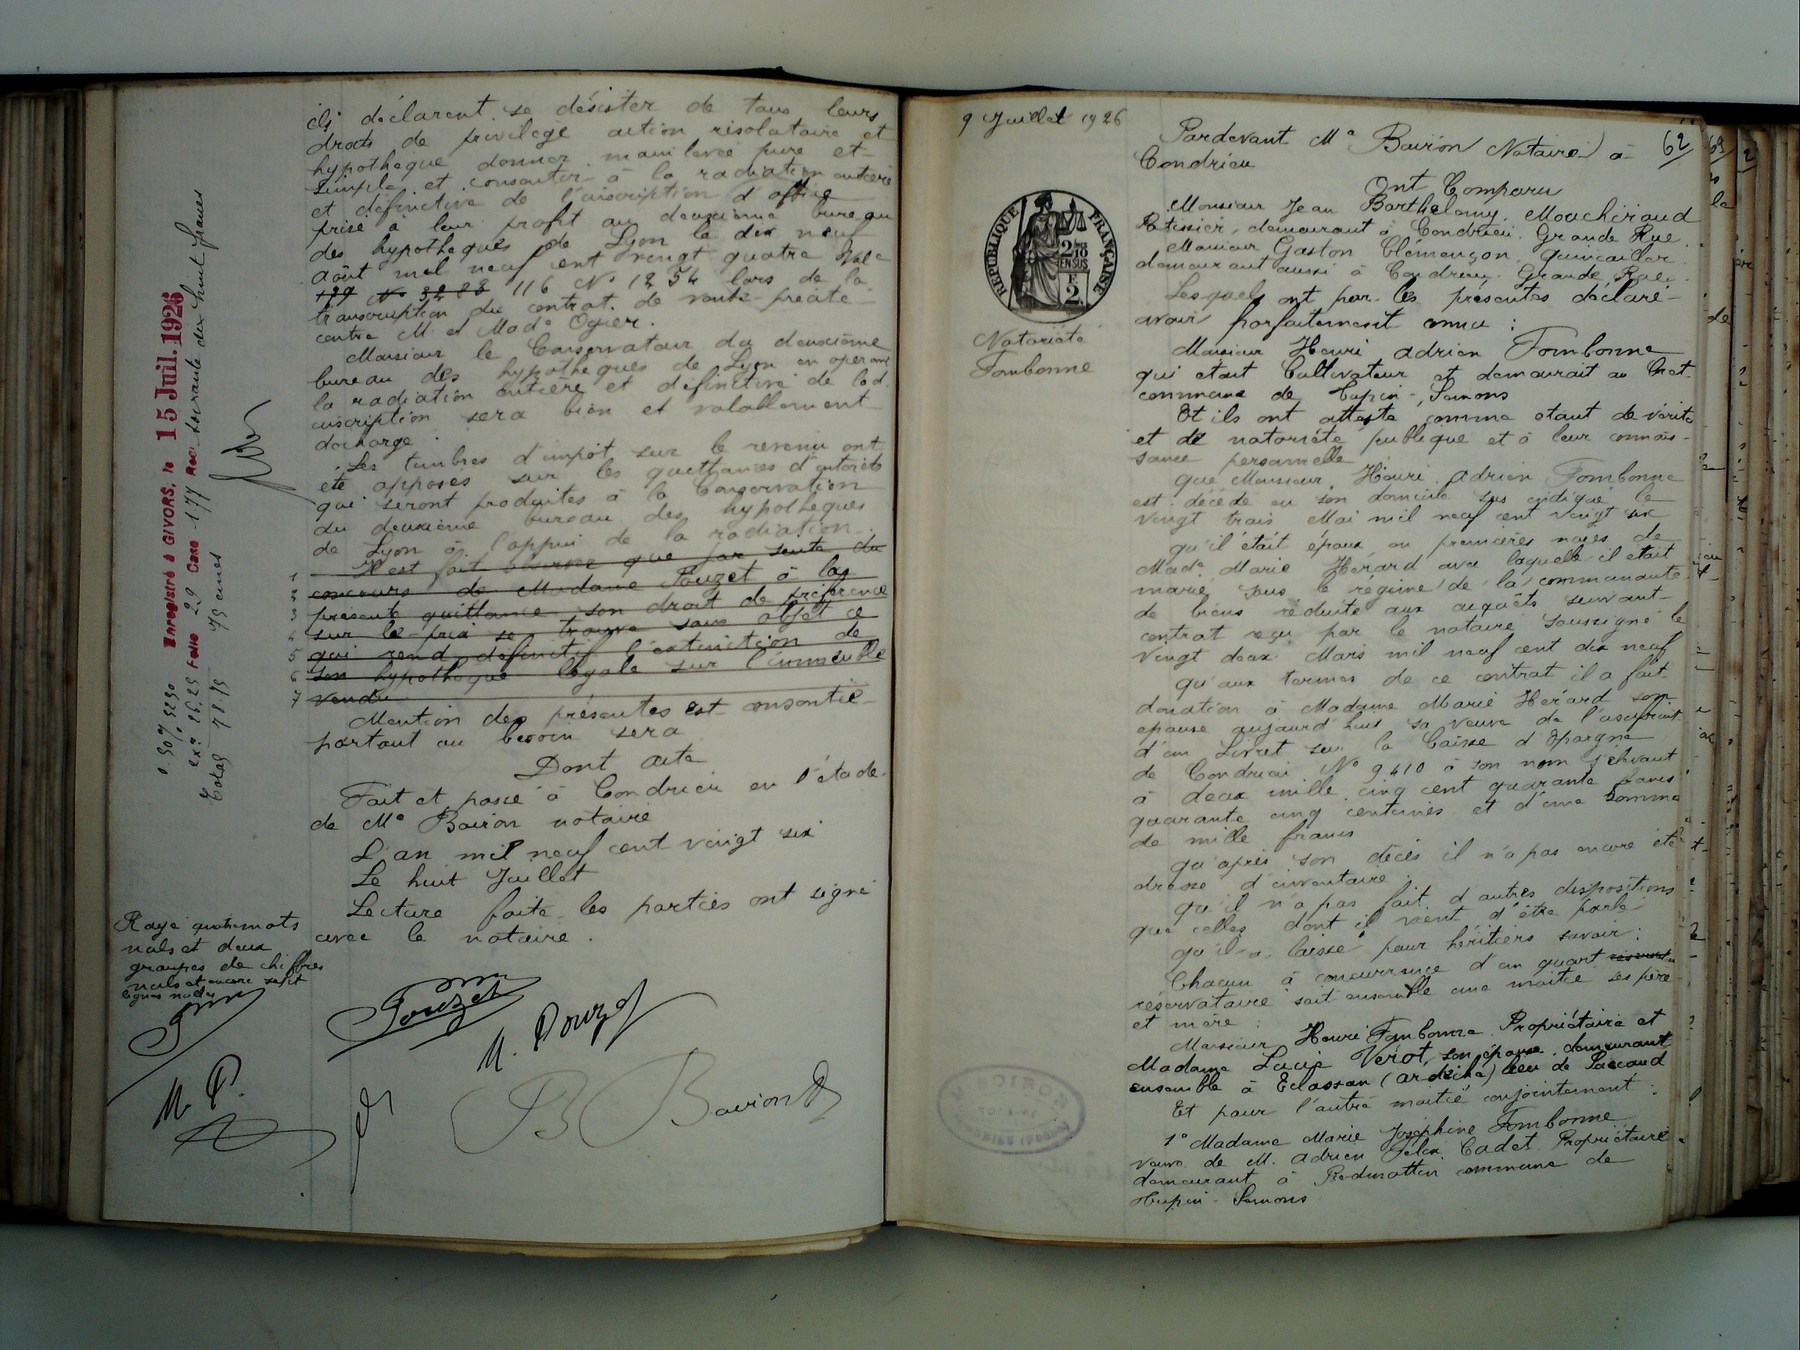 ils déclarent se désister de tous leurs
droits de privilège action résolutoire et
hypothèque donner mainlevée pure et
simple et consentir à la radiation entière
et définitive de l'inscription d'office
prise à leur profit au deuxième bureau
des hypothèques de Lyon le dix neuf
Août mil neuf cent vingt quatre Vol.
199 No 3288 116 No 1254 lors de la
transcription du contrat de vente précité
contre M. et Made Ogier.
Monsieur le Conservateur du deuxième
bureau des hypothèques de Lyon en opérant
la radiation entière et définitive de lad.
inscription sera bien et valablement
déchargé.
Les timbres d'impôt sur le revenu ont
été apposés sur les quittances d'intérêts
qui seront produites à la Conservation
du deuxième bureau des hypothèques
de Lyon à l'appui de la radiation.
1 Il est fait observer que par suite du
2 concours de Madame Pouzet à la
3 présente quittance, son droit de préférence
4 sur le prix se trouve sans objet ce
5 qui rend définitif l'extinction de
6 son hypothèque légale sur l'immeuble
7 vendu
Mention des présentes est consentie
partout au besoin sera
Dont acte
Fait et passé à Condrieu en l'étude
de Me Bairon notaire
L'an mil neuf cent vingt six
Le huit Juillet
Lecture faite les parties ont signé
avec le notaire.
Rayé quatre mots
nuls et deux
groupes de chiffres
nuls et encore sept
lignes nulles
Pouzet
M. Pouzet
M. P.
Bairon
Enregistré à GIVORS, le 15 Juil. 1926
Folio 29 Case 177 Reçu soixante dix huit francs
75 cmes
0.50% 52.50
ex.ce 26.25
Total 78.75
62
9 Juillet 1926
RÉPUBLIQUE FRANÇAISE
Notoriété
Fombonne
Pardevant Me Bairon Notaire à
Condrieu
Ont Comparu
Monsieur Jean Barthelemy Mouchiroud
Pâtissier, demeurant à Condrieu Grande Rue.
Monsieur Gaston Clémençon, quincailler
demeurant aussi à Condrieu, Grande Rue.
Lesquels ont par les présentes déclaré
avoir parfaitement connu :
Monsieur Henri Adrien Fombonne
qui était Cultivateur et demeurait au
commune de Tupin-Semons
Et ils ont attesté comme étant de vérité
et de notoriété publique et à leur connais-
sance personnelle
que Monsieur Henri Adrien Fombonne
est décédé en son domicile sus indiqué le
vingt trois Mai mil neuf cent vingt six
qu'il était époux en premières noces de
Made Marie Hérard avec laquelle il était
marié sous le régime de la communauté
de biens réduite aux acquêts suivant
contrat reçu par le notaire soussigné le
vingt deux Mars mil neuf cent dix neuf
qu'aux termes de ce contrat il a fait
donation à Madame Marie Hérard son
épouse aujourd'hui sa veuve de l'usufruit
d'un Livret sur la Caisse d'Epargne
de Condrieu No 9410 à son nom s'élevant
à deux mille cinq cent quarante francs
quarante cinq centimes et d'une somme
de mille francs
qu'après son décès il n'a pas encore été
dressé d'inventaire.
qu'il n'a pas fait d'autres dispositions
que celles dont il vient d'être parlé
qu'il a laissé pour héritiers savoir :
Chacun à concurrence d'un quart
réservataire soit ensemble une moitié ses père
et mère :
Monsieur Henri Fombonne Propriétaire et
Madame Lucie Verot, son épouse demeurant
ensemble à Eclassan (Ardèche) lieu de
Et pour l'autre moitié conjointement :
1° Madame Marie Joséphine Fombonne
veuve de M. Adrien Félix Cadet Propriétaire
demeurant à commune de
Tupin-Semons